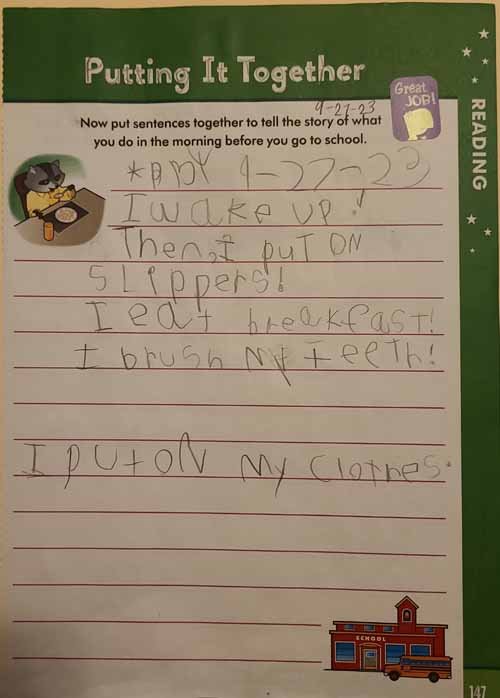 Putting It Together
Great
JOB!
READING
9-27-23
Now put sentences together to tell the story of what
you do in the morning before you go to school.
9-27-23
I wake up!
Then, I put ON
Slippers!
I eat breakfast!
I brush my teeth!
I put oN my clothes.
SCHOOL
147